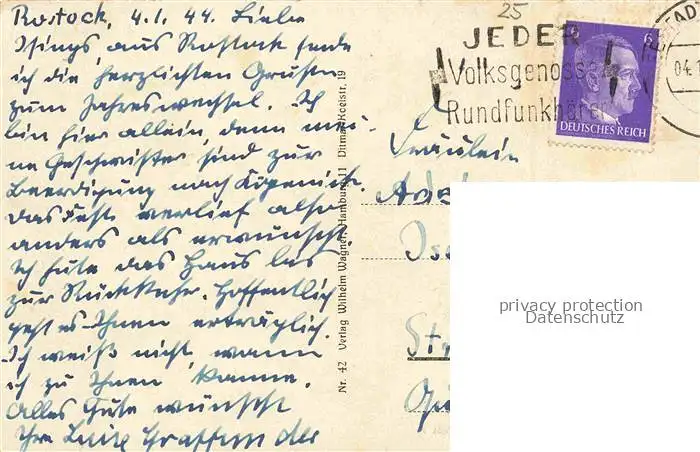 Rostock, 4.1.44. Liebe
aus Rostock sende
ich die herzlichsten Grüße
zum Jahreswechsel. Ich
bin hier allein, denn mei-
ne Geschwister sind zur
Beerdigung nach Köpenick.
Das Fest verlief also
anders als erwünscht.
Ich hüte das Haus bis
zur Rückkehr. Hoffentlich
geht es Ihnen erträglich.
Ich weiß nicht, wann
ich zu Ihnen komme.
Alles Gute wünscht
Ihre Luise
Nr. 42 Verlag Wilhelm Wagner, Hamburg 11 Ditmar Koelstr. 19
25
JEDER
Volksgenosse
Rundfunkhörer
6
DEUTSCHES REICH
04.1
Fräulein
privacy protection
Datenschutz